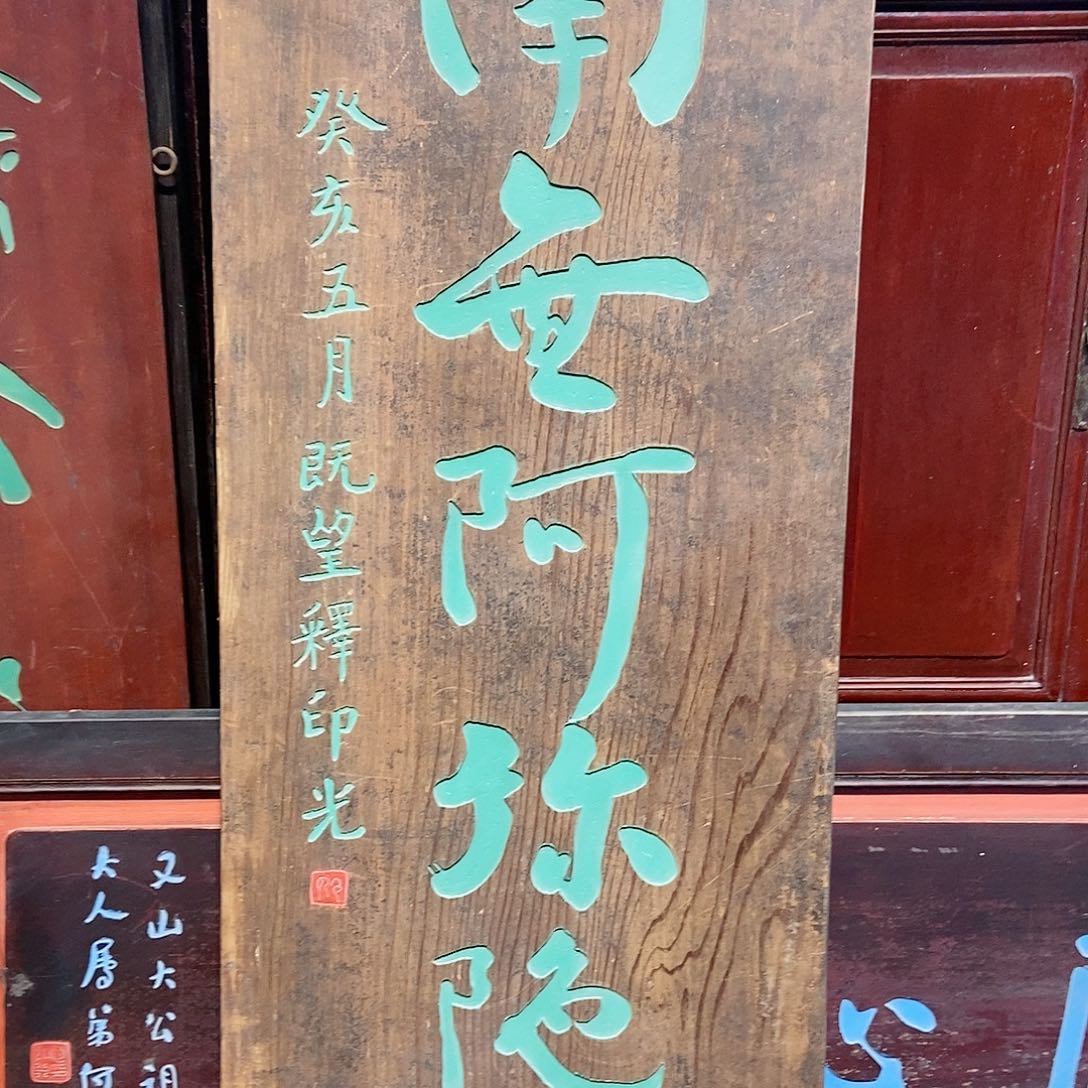 南無阿弥陀
癸亥五月既望釋印光
又山大公祖
大人属弟何